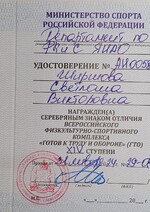 МИНИСТЕРСТВО СПОРТА
РОССИЙСКОЙ ФЕДЕРАЦИИ
Департамент по
ФКиС ЯНАО
УДОСТОВЕРЕНИЕ № АИ0058
Ширшова
Светлана
Викторовна
НАГРАЖДЕН(А)
СЕРЕБРЯНЫМ ЗНАКОМ ОТЛИЧИЯ
ВСЕРОССИЙСКОГО
ФИЗКУЛЬТУРНО-СПОРТИВНОГО
КОМПЛЕКСА
«ГОТОВ К ТРУДУ И ОБОРОНЕ» (ГТО)
XIV СТУПЕНИ